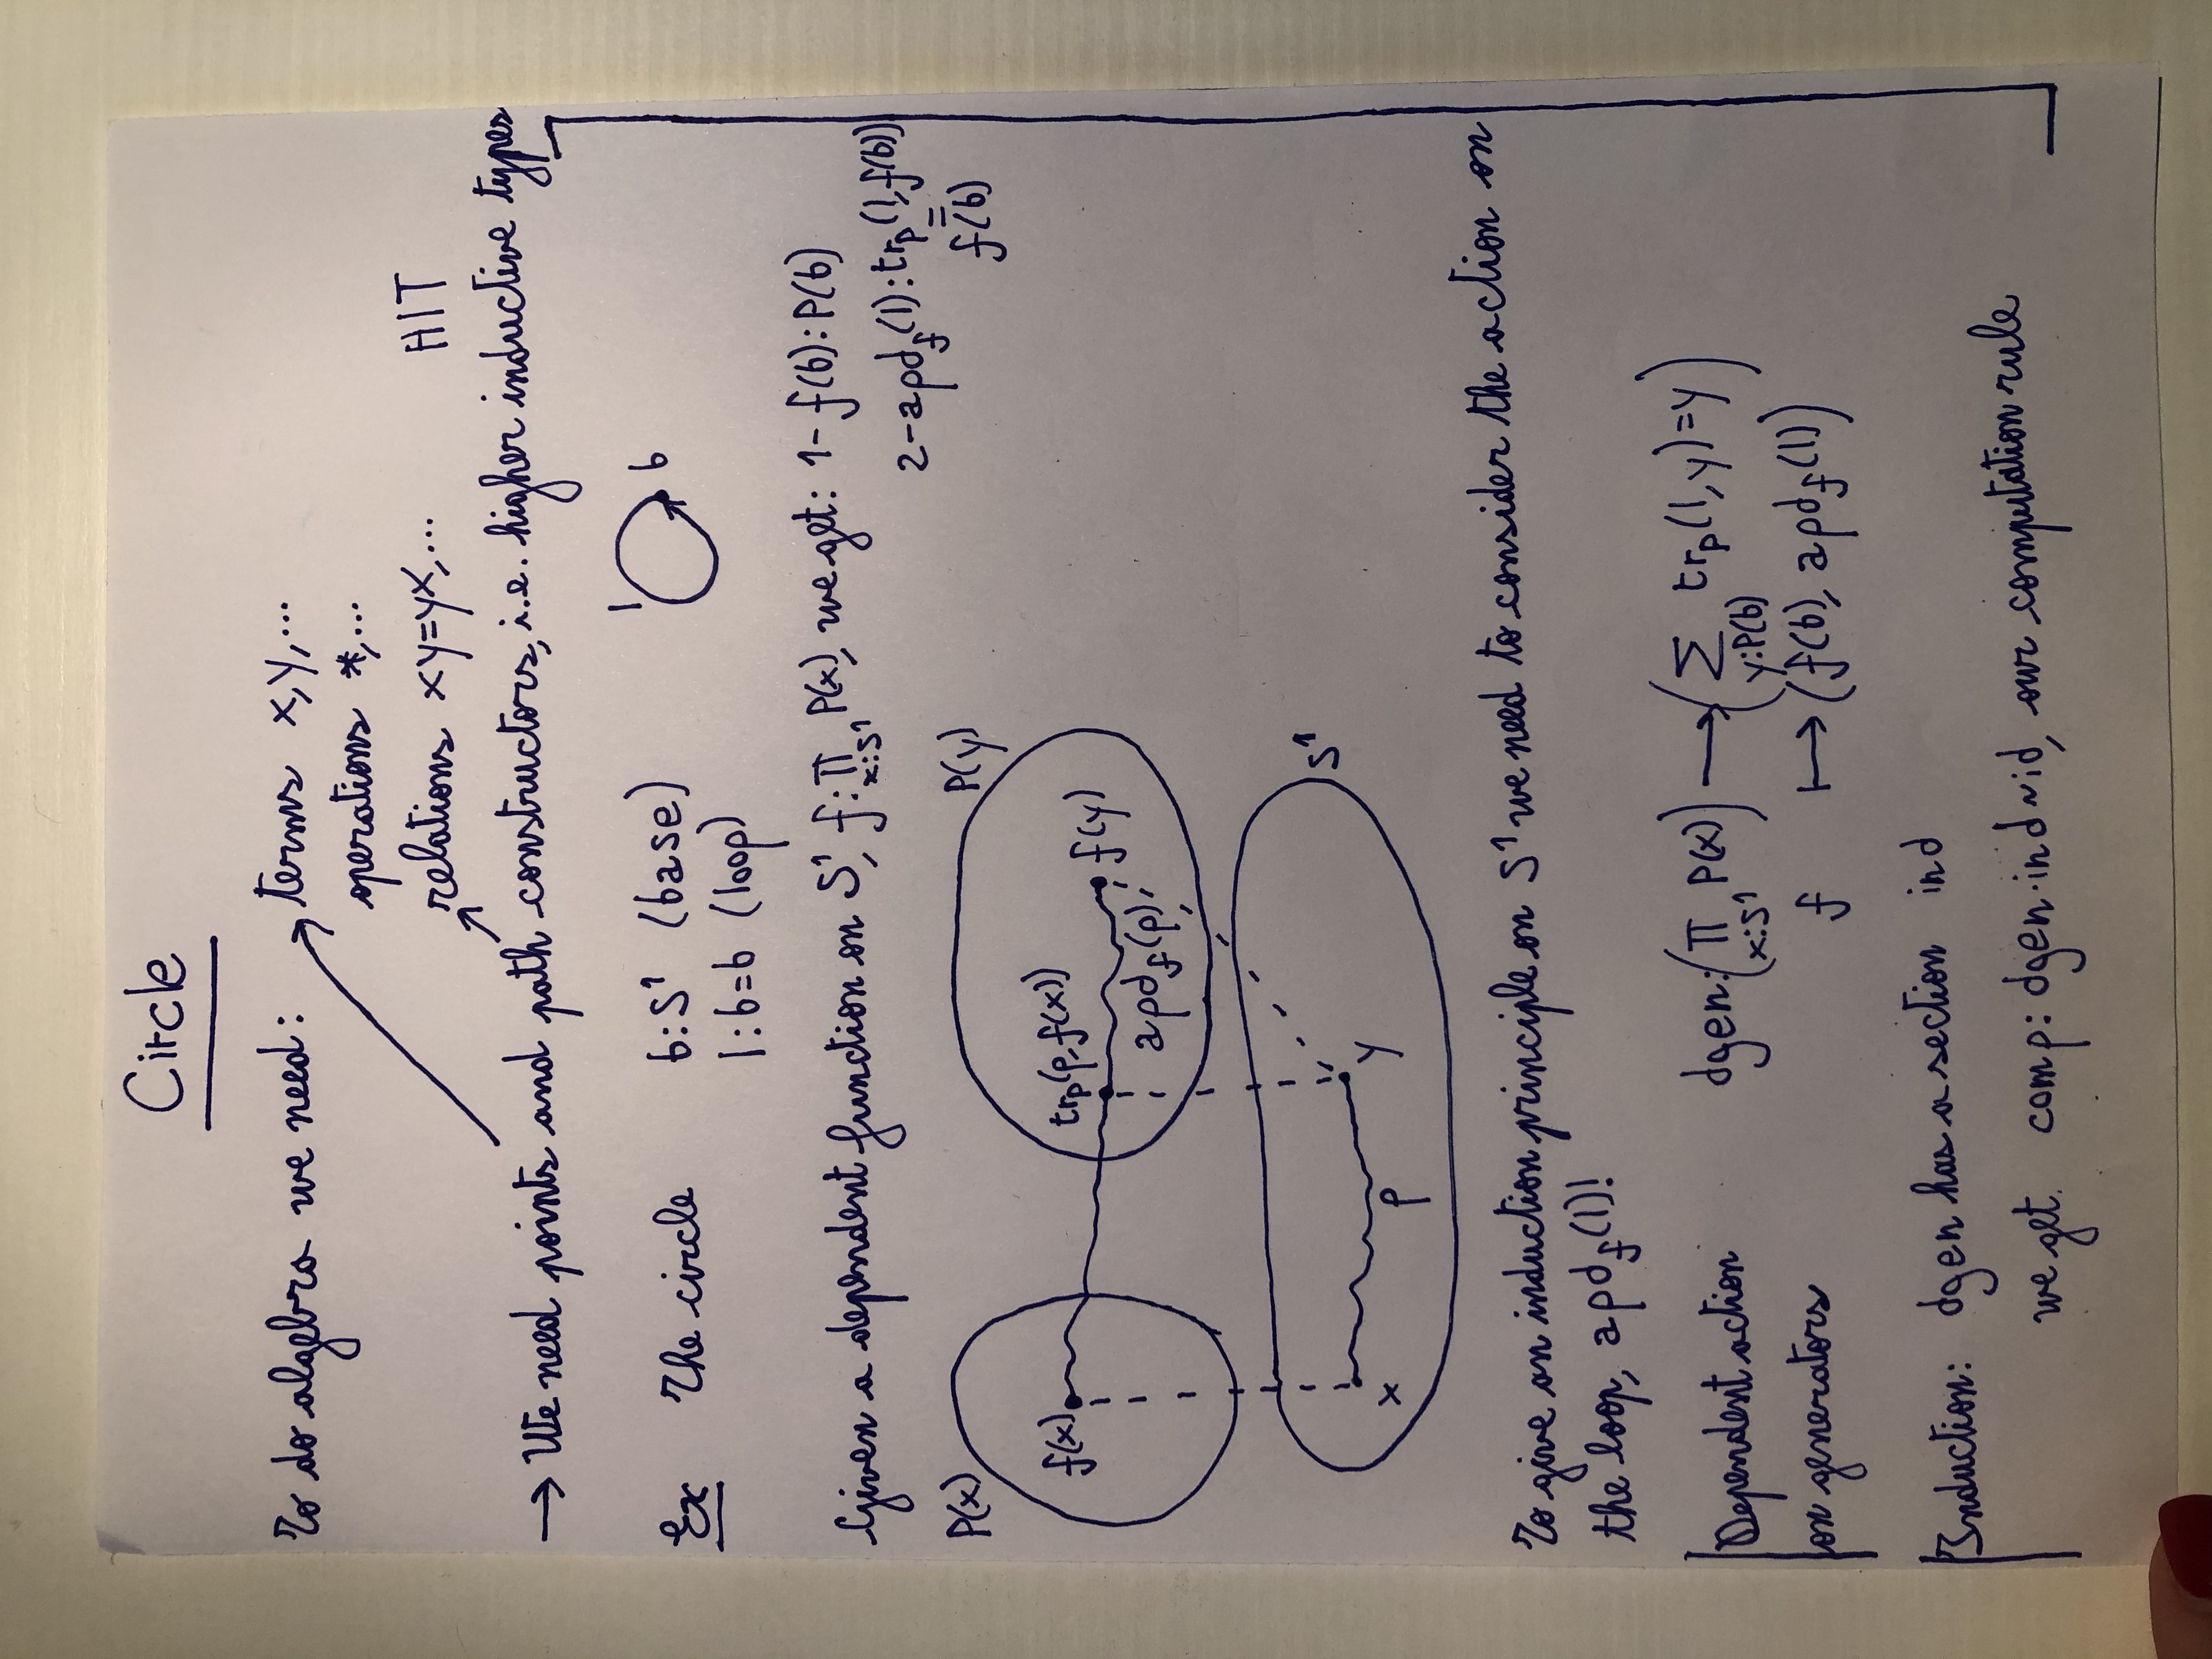 Circle
To do algebra we need: terms x,y,...
operations *,...
relations xy=yx,...
HIT
→ We need points and path constructors, i.e. higher inductive types
Ex The circle b:S¹ (base)
l:b=b (loop)
l b
Given a dependent function on S¹, f:Π P(x), we get: 1- f(b):P(b)
x:S¹
2-apd_f(l):tr_p(l,f(b))
=
f(b)
P(x) P(y)
f(x) tr_p(p,f(x)) f(y)
apd_f(p)
S¹
x p y
To give an induction principle on S¹ we need to consider the action on
the loop, apd_f(l)!
Dependent action dgen:(Π P(x)) → (Σ tr_p(l,y)=y)
x:S¹ y:P(b)
on generators f ↦ (f(b), apd_f(l))
Induction: dgen has a section ind
we get. comp: dgen·ind~id, our computation rule